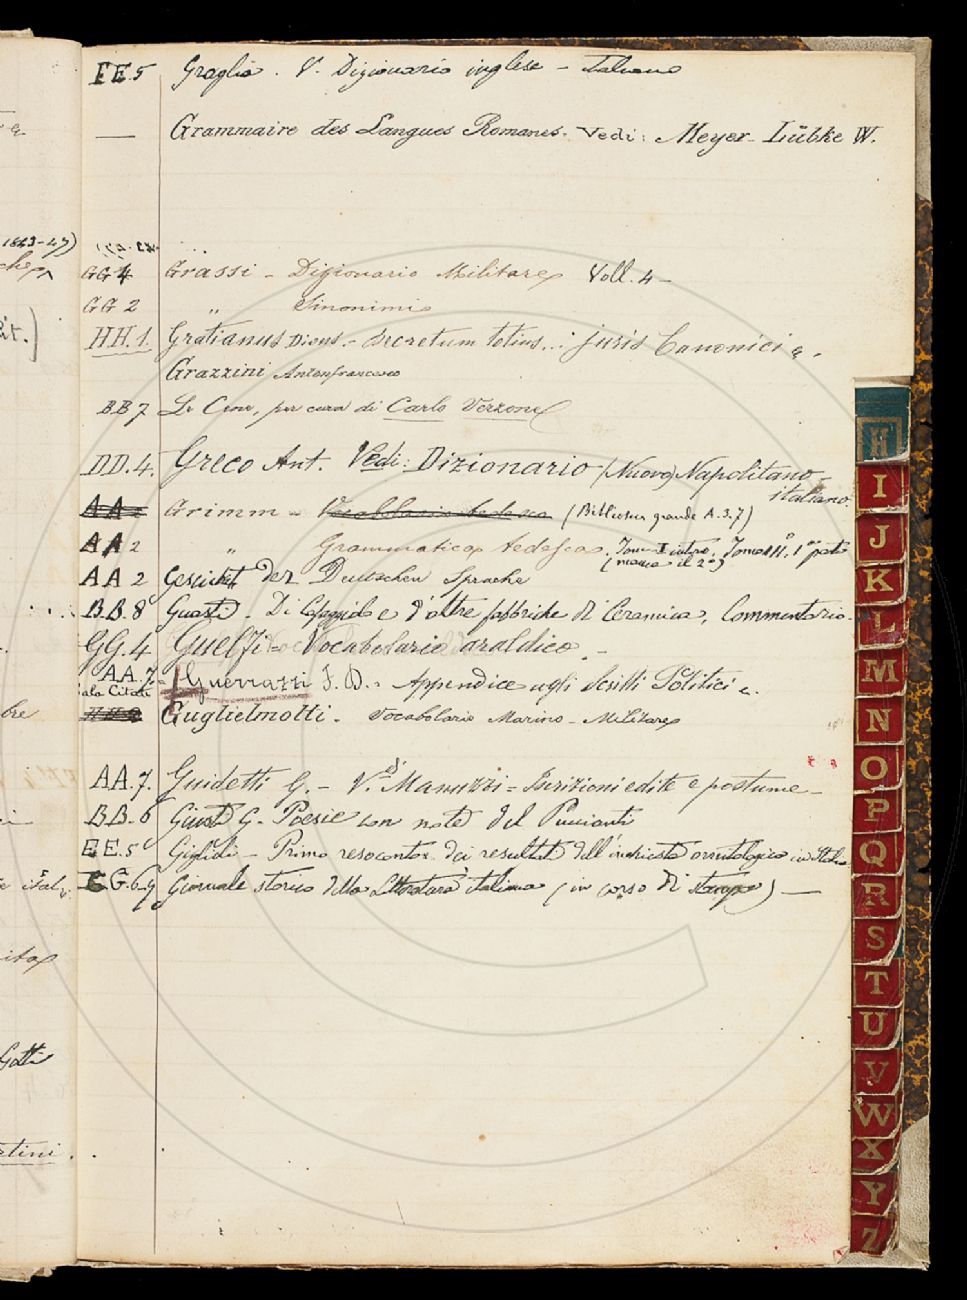 EE.5 Graglia. V. Dizionario inglese - italiano
— Grammaire des Langues Romanes. Vedi: Meyer-Lübke W.
1843-47)
GG 4 Grassi - Dizionario Militare Voll. 4 -
GG 2 „ Sinonimi
HH. 1. Gratianus Divus. - Decretum totius... juris Canonici &.
Grazzini Antonfrancesco
BB 7 Le Cene, per cura di Carlo Verzone
DD. 4. Greco Ant. Vedi: Dizionario (Nuovo) Napolitano-
italiano.
AA 2 Grimm - Vocabolario tedesco (Biblioteca grande A.3.7)
AA 2 „ Grammatica tedesca. Tomo I intro. Tomo III°, 1a parte
(manca il 2°)
AA 2 Geschicht der Deutschen Sprache
BB. 8 Guasti. Di Cafaggiolo e d'altre fabbriche di Ceramica, Commentario.
GG. 4 Guelfi = Vocabolario araldico.
AA. 7. = Guerrazzi F. D. : Appendice agli Scritti Politici &.
Sala Citati
HH 2 Guglielmotti. Vocabolario Marino - Militare
AA. 7. Guidetti G. - V. di Manuzzi = Iscrizioni edite e postume -
BB. 6 Giusti G. Poesie con note del Puccianti
EE. 5 Giglioli - Primo resoconto dei resultati dell'inchiesta ornitologica in Italia
GG. 6.9 Giornale storico della Letteratura italiana (in corso di stampa) —
H
I
J
K
L
M
N
O
P
Q
R
S
T
U
V
W
X
Y
Z